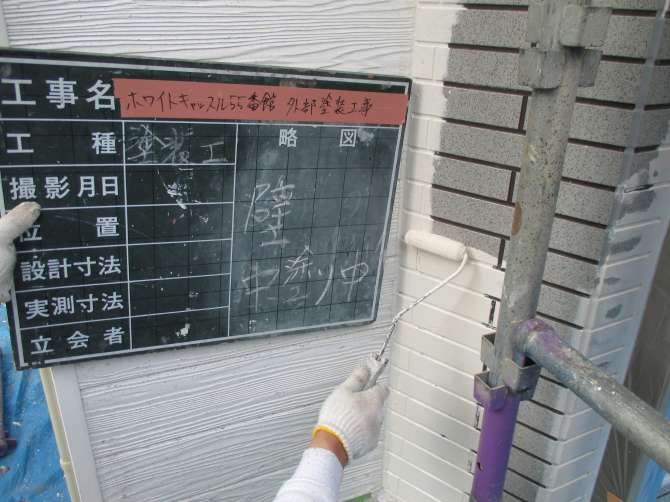 工事名 ホワイトキャッスル55番館 外部塗装工事
工種 塗装工 略図
撮影月日
位置
設計寸法
実測寸法
立会者
壁
中塗り中